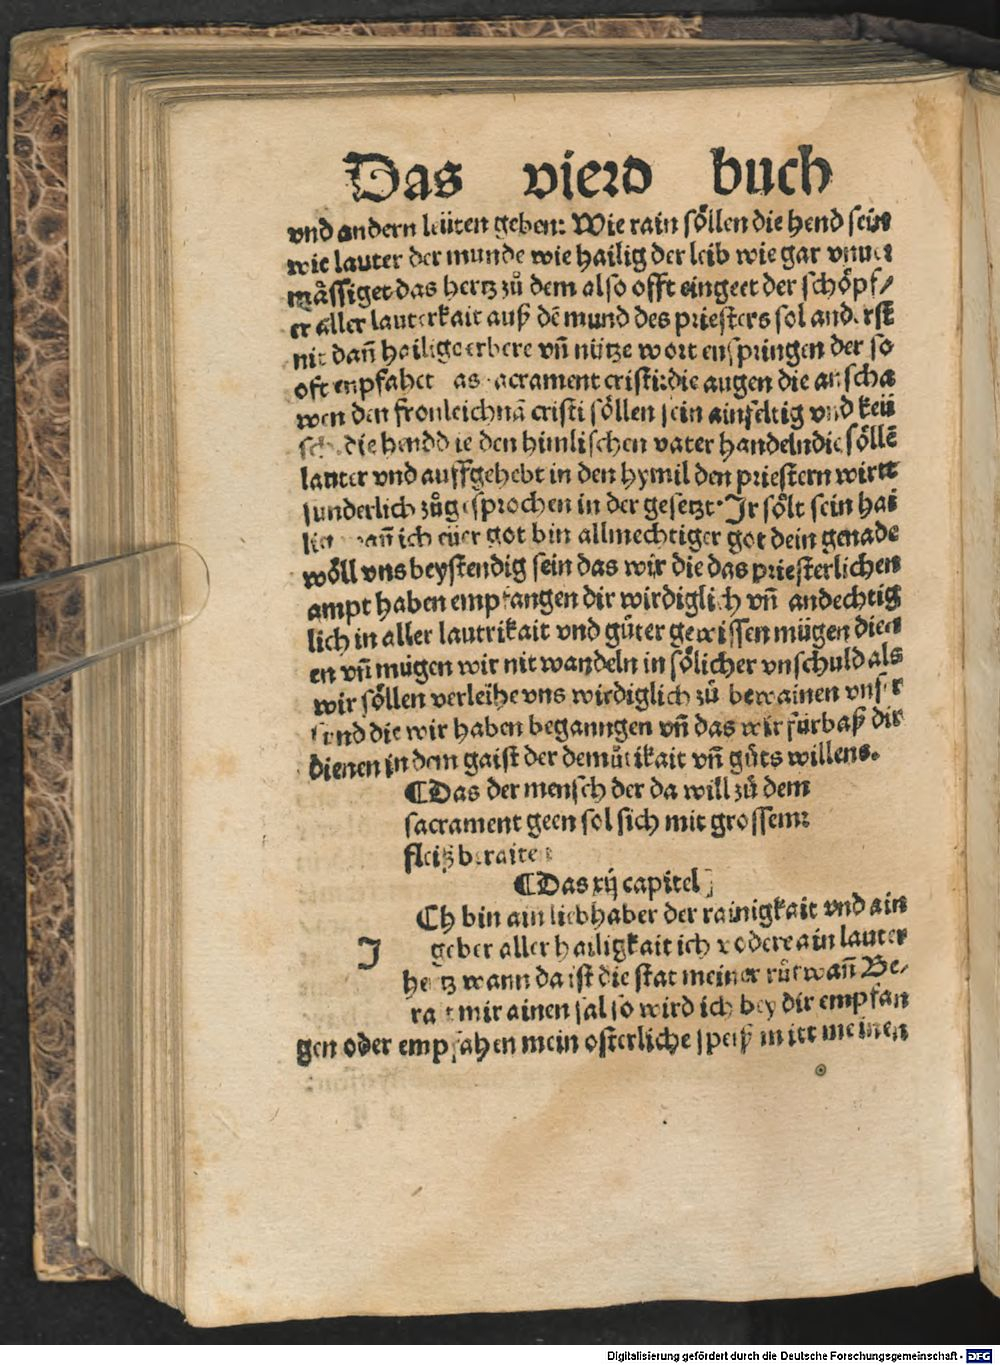 Das vierd buch
vnd andern leüten geben: Wie rain söllen die hend sein
wie lauter der munde wie hailig der leib wie gar vnuer
mässiget das hertz zů dem also offt eingeet der schöpf/
er aller lauterkait auß dē mund des priesters sol anderst
nit dañ hailige erbere vñ nütze wort enspringen der so
oft enpfahet as acrament cristi: die augen die anscha
wen den fronleichnā cristi söllen sein ainfeltig vnd keü
sch die hendd ie den himlischen vater handeln die söllē
lauter vnd auffgehebt in den hymil den priestern wirtt
sunderlich zůgesprochen in der gesetzt· Jr sölt sein hai
lig wañ ich eüer got bin allmechtiger got dein genade
wöll vns beystendig sein das wir die das priesterlichen
ampt haben empfangen dir wirdiglich vñ andechtig
lich in aller lautrikait vnd gůter gewissen mügen dien
en vñ mügen wir nit wandeln in sölicher vnschuld als
wir söllen verleihe vns wirdiglich zů bewainen vnser
sünd die wir haben beganngen vñ das wir fürbaß dir
dienen in dem gaist der demůtikait vñ gůts willens.
¶Das der mensch der da will zů dem
sacrament geen sol sich mit grossem:
fleiß beraiten
¶Das xij capitel
Ch bin ain liebhaber der rainigkait vnd ain
J geber aller hailigkait ich vodere ain lauter
hertz wann da ist die stat meiner růt wañ Be/
rait mir ainen sal so wird ich bey dir empfan
gen oder empfahen mein osterliche speiß mitt meinen
Digitalisierung gefördert durch die Deutsche Forschungsgemeinschaft - DFG